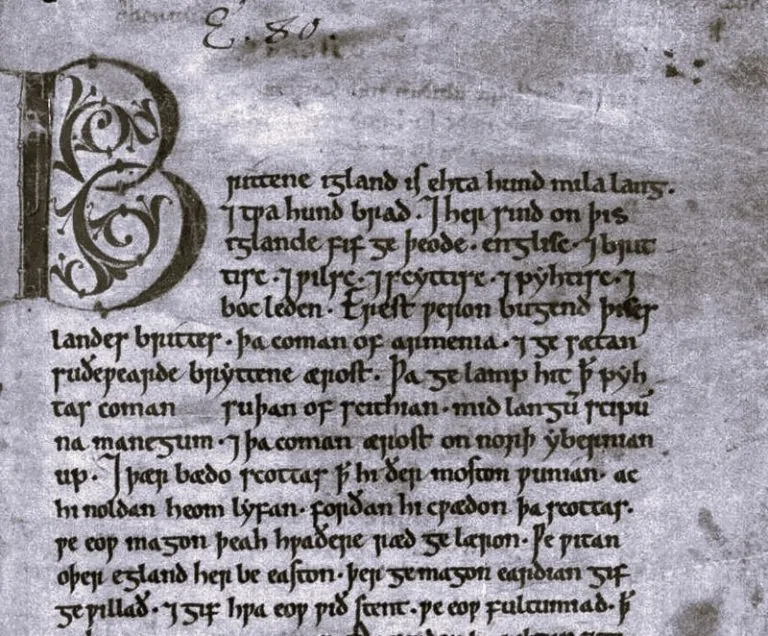 E. 80.
Brittene igland is ehta hund mila lang.
⁊ tƿa hund brad. ⁊ her sind on þis
iglande fif ge þeode. englisc. ⁊ brit
tisc. ⁊ ƿilsc. ⁊ scyttisc. ⁊ pyhtisc. ⁊
boc leden. Erest ƿeron bugend þises
landes brittes. þa coman of armenia. ⁊ ge sætan
suðeƿearde bryttene ærost. Þa ge lamp hit ꝥ pyh
tas coman suþan of scithian. mid langū scipū
na manegum. ⁊ þa coman ærost on norþ ybernian
up. ⁊ þær bædo scottas ꝥ hi ðer moston ƿunian. ac
hi noldan heom lyfan. forðan hi cƿædon þa scottas.
ƿe eoƿ magon þeah hƿaðere ræd ge læron. Ƿe ƿitan
oþer egland her be easton. þer ge magon eardian gif
ge ƿillað. ⁊ gif hƿa eoƿ ƿið stent. ƿe eoƿ fultumiað. ꝥ